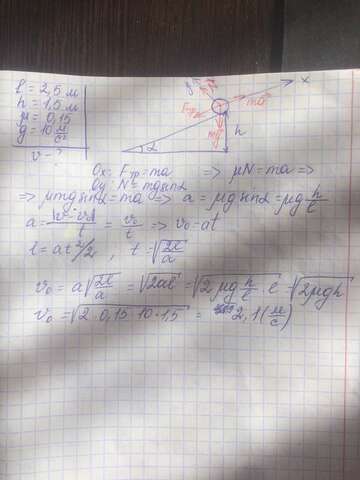 l = 2,5 м
h = 1,5 м
μ = 0,15
g = 10 м/с²
v - ?
y N
x
Fтр
ma
mg
h
α
Ox: Fтр = ma => μN = ma =>
Oy: N = mg sin α
=> μmg sin α = ma => a = μg sin α = μg h/l
a = |v - v₀|/t = v₀/t => v₀ = at
l = at²/2, t = √(2l/a)
v₀ = a√(2l/a) = √(2al) = √(2μg h/l · l) = √(2μgh)
v₀ = √(2·0,15·10·1,5) = 2,1 (м/с)